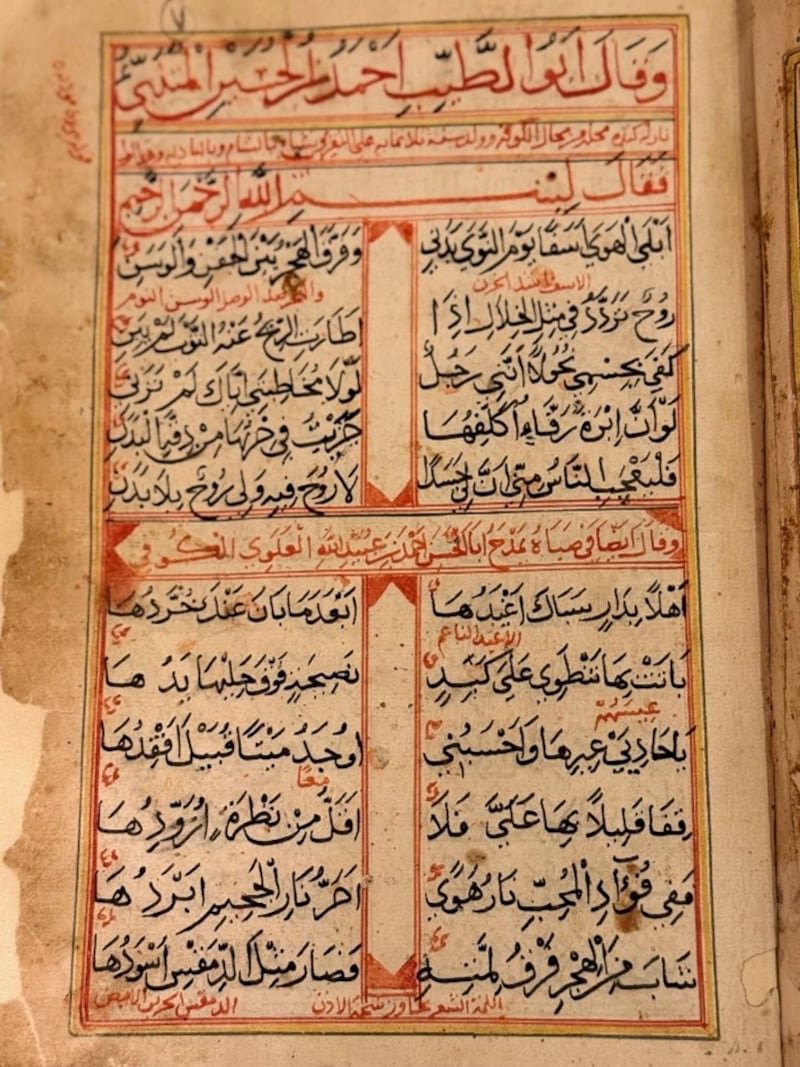 ٧
وَقَالَ اَبُو الطَّيِّبِ اَحْمَدُ بْنُ الْحُسَيْنِ الْمُتَنَبِّي
فَقَالَ بِسْمِ اللّٰهِ الرَّحْمٰنِ الرَّحِيمِ
اَبْلَى الْهَوَى اَسَفًا يَوْمَ النَّوَى بَدَنِي وَفَرَّقَ الْهَجْرُ بَيْنَ الْجَفْنِ وَالْوَسَنِ
الاسف اشد الحزن والهجر ضد الوصل الوسن النوم
رُوحٌ تَرَدَّدُ فِي مِثْلِ الْخِلَالِ اِذَا اَطَارَتِ الرِّيحُ عَنْهُ الثَّوْبَ لَمْ يَبِنِ
كَفَى بِجِسْمِي نُحُولًا اَنَّنِي رَجُلٌ لَوْلَا مُخَاطَبَتِي اِيَّاكَ لَمْ تَرَنِي
لَوْ اَنَّ اِبْرَةَ رَفَّاءٍ اُكَلِّفُهَا جَرَيْتُ فِي خَرْتِهَا مِنْ دِقَّةِ الْبَدَنِ
فَلْيَعْجَبِ النَّاسُ مِنِّي اَنَّ لِي جَسَدًا لَا رُوحَ فِيهِ وَلِي رُوحٌ بِلَا بَدَنِ
وَقَالَ اَيْضًا فِي صِبَاهُ يَمْدَحُ اَبَا الْحَسَنِ مُحَمَّدَ بْنَ عُبَيْدِ اللّٰهِ الْعَلَوِيَّ الْكُوفِي
اَهْلًا بِدَارٍ سَبَاكَ اَغْيَدُهَا اَبْعَدَ مَا بَانَ عَنْكَ خُرَّدُهَا
الاغيد الناعم
بَانَتْ بِهَا تَنْطَوِي عَلَى كَبِدٍ نَضِيجَةٍ فَوْقَ خِلْبِهَا يَدُهَا
يَا حَادِيَيْ عِيرِهَا وَاَحْسَبُنِي اَوْجَدُ مَيْتًا قُبَيْلَ اَفْقِدُهَا
قِفَا قَلِيلًا بِهَا عَلَيَّ فَلَا اَقَلَّ مِنْ نَظْرَةٍ اُزَوَّدُهَا
فَفِي فُؤَادِ الْمُحِبِّ نَارُ هَوًى اَحَرُّ نَارِ الْجَحِيمِ اَبْرَدُهَا
شَابَ مِنَ الْهَجْرِ فَرْقُ لِمَّتِهِ فَصَارَ مِثْلَ الدِّمَقْسِ اَسْوَدُهَا
اللمة الشعر تجاوز شحمة الاذن الدمقس الحرير الابيض